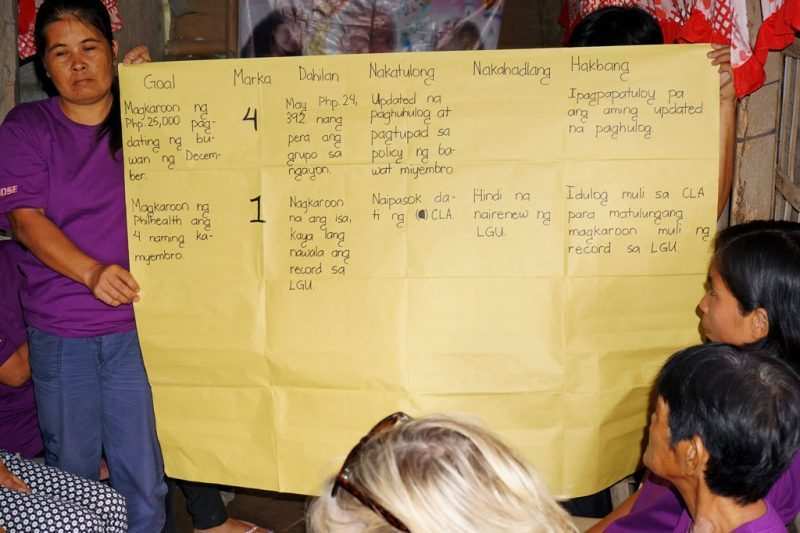 Goal
Marka
Dahilan
Nakatulong
Nakahadlang
Hakbang
Magkaroon ng
Php. 25,000 pag-
dating ng bu-
wan ng Decem-
ber.
4
May Php. 29,
392 nang
pera ang
grupo sa
ngayon.
Updated na
paghuhulog at
pagtupad sa
policy ng ba-
wat miyembro
Ipagpapatuloy pa
ang aming updated
na paghulog.
Magkaroon ng
Philhealth ang
4 naming ka-
myembro.
1
Nagkaroon
na ang isa,
kaya lang
nawala ang
record sa
LGU.
Naipasok da-
ti ng CLA
Hindi na
nairenew ng
LGU.
Idulog muli sa CLA
para matulungang
magkaroon muli ng
record sa LGU.